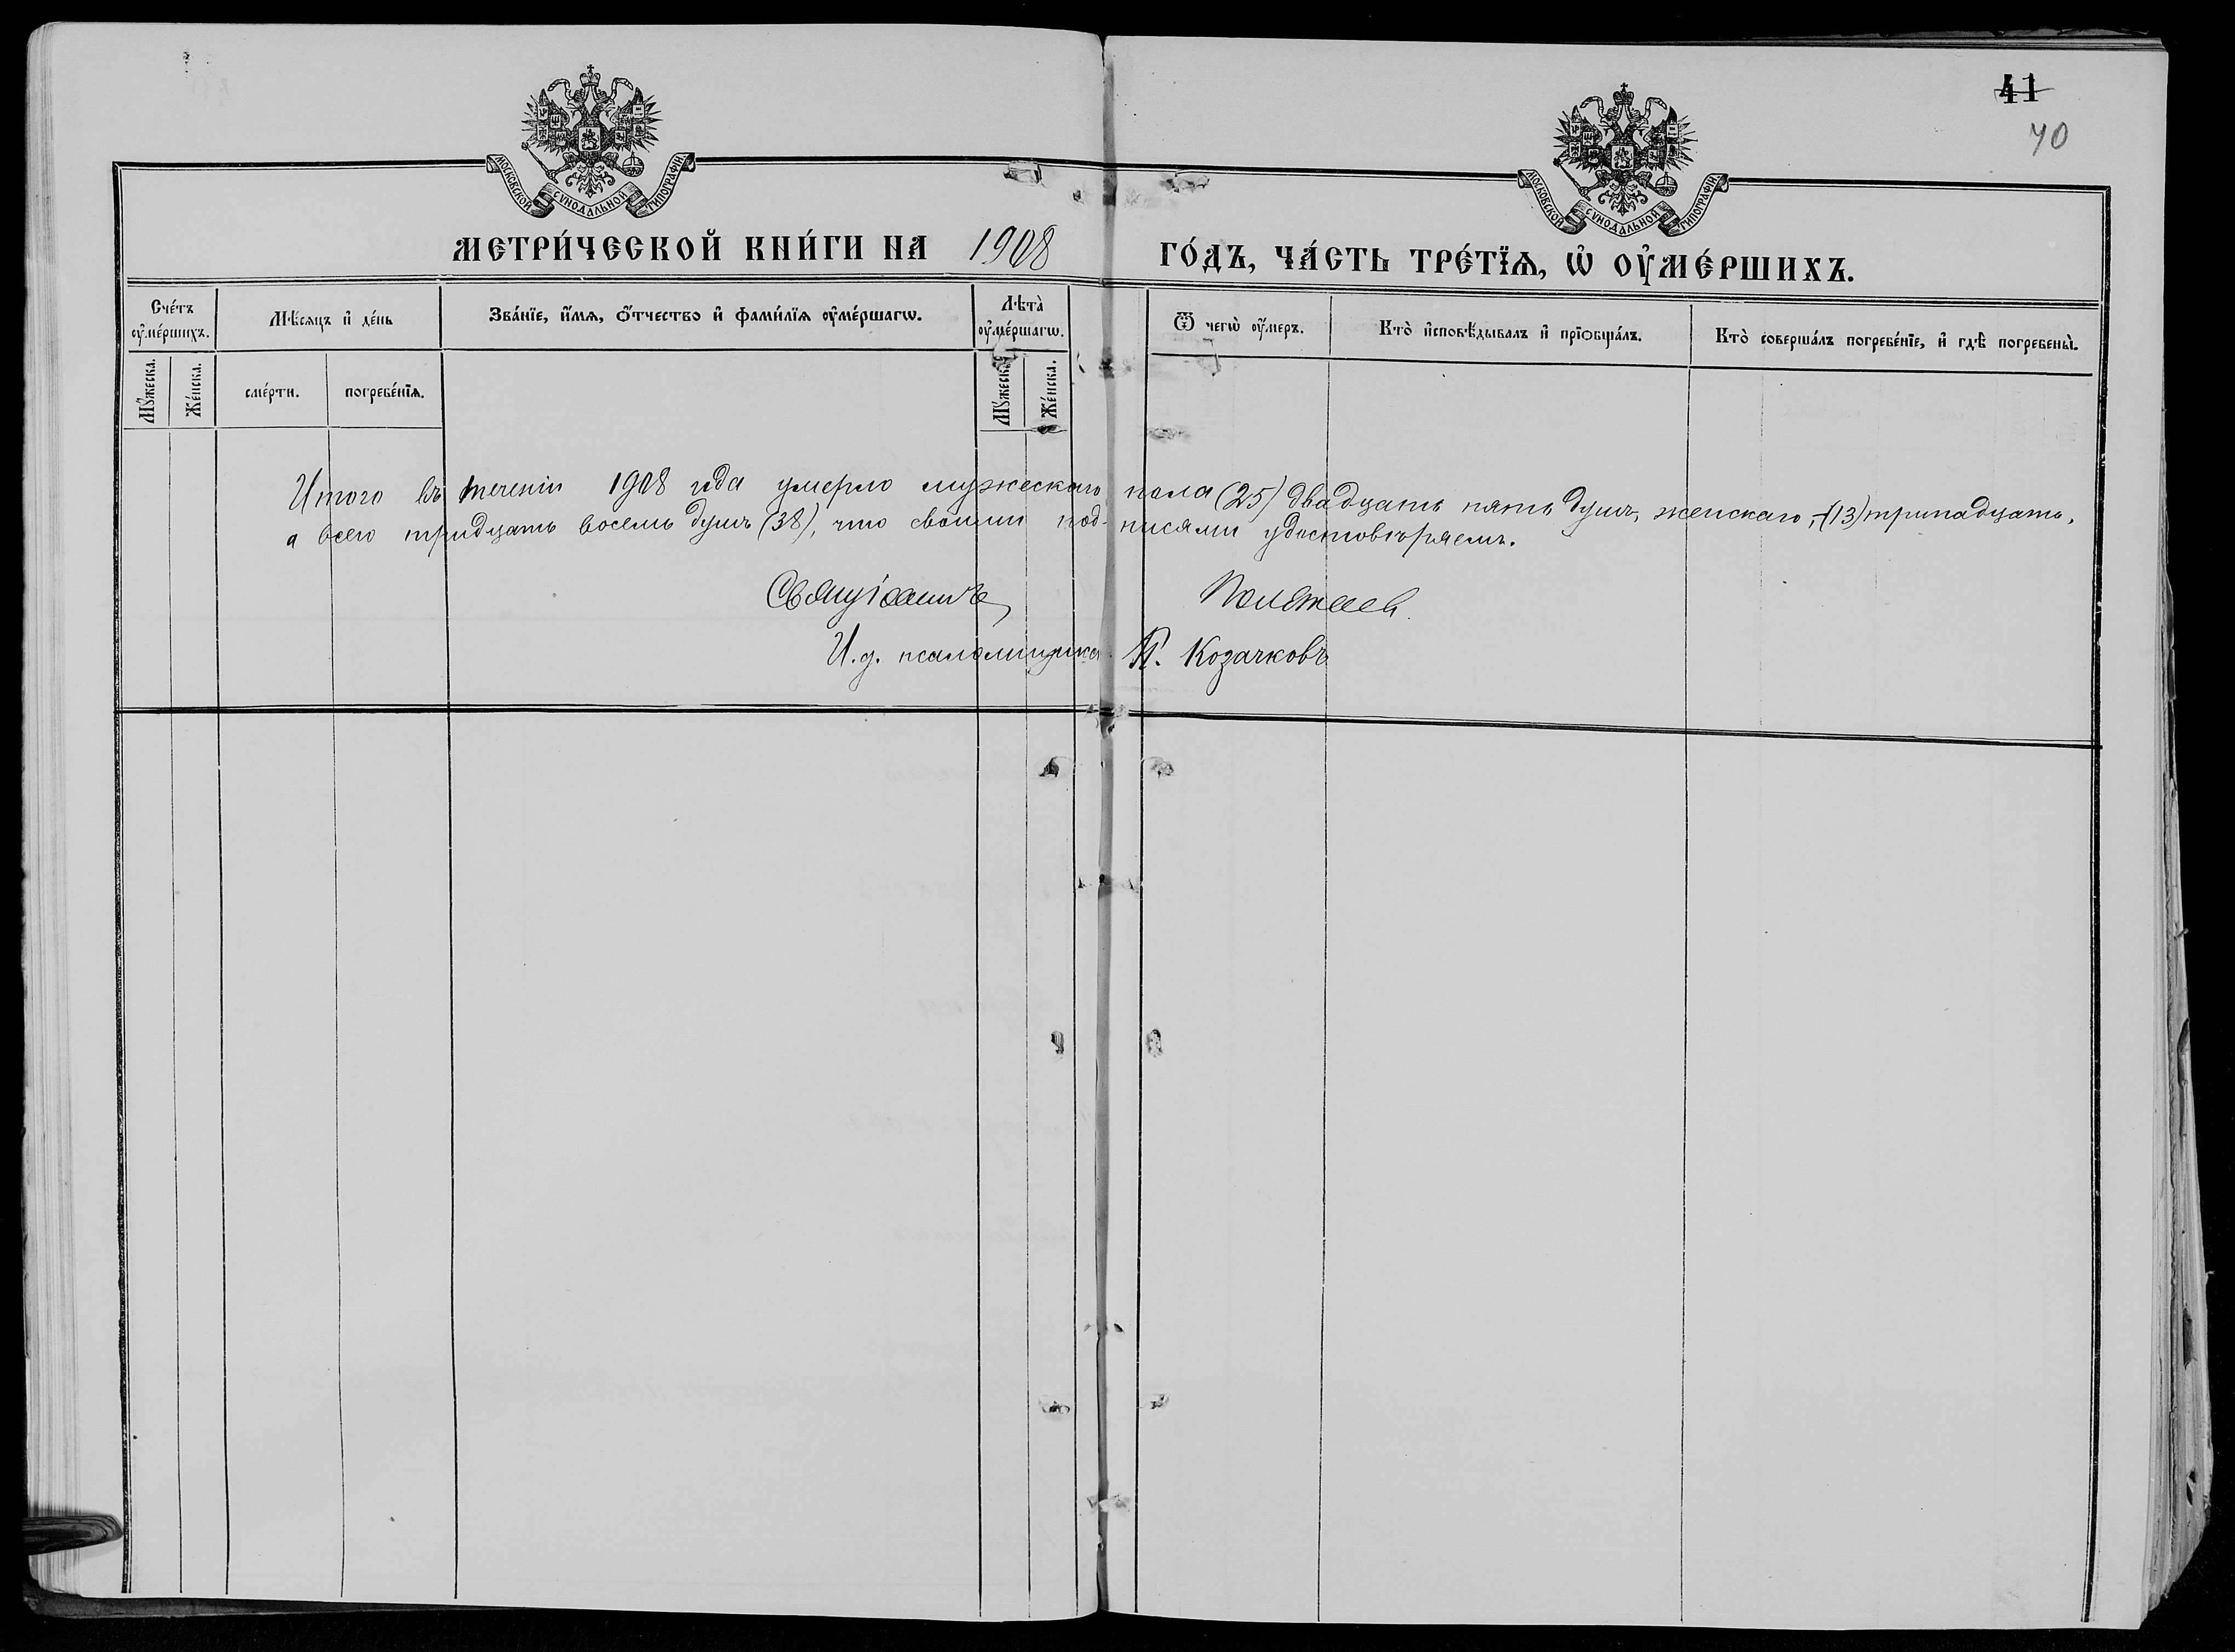 41
40
МОСКОВСКОЙ СѴНОДАЛЬНОЙ ТИПОГРАФІИ
МОСКОВСКОЙ СѴНОДАЛЬНОЙ ТИПОГРАФІИ
МЕТРИ́ЧЕСКОЙ КНИ́ГИ НА 1908 ГО́ДЪ, ЧА́СТЬ ТРЕ́ТЇѦ, Ѡ҆ ОУ҆МЕ́РШИХЪ.
Сче́тъ оу҆ме́ршихъ.
Мѣ́сяцъ и҆ де́нь
Зва́нїе, и҆́мѧ, ѻ҆́тчество и҆ фами́лїѧ оу҆ме́ршагѡ.
Лѣта̀ оу҆ме́ршагѡ.
Ѿ чегѡ̀ оу҆́меръ.
Кто̀ и҆сповѣ́дывалъ и҆ прїѻбща́лъ.
Кто̀ соверша́лъ погребе́нїе, и҆ гдѣ̀ погребены̀.
Мꙋ́жеска.
Же́нска.
сме́рти.
погребе́нїѧ.
Мꙋ́жеска.
Же́нска.
Итого въ теченіи 1908 года умерло мужескаго пола (25) двадцать пять душъ, женскаго, -(13) тринадцать,
а всего тридцать восемь душъ (38), что своими под- писями удостовѣряемъ.
Полежаевъ
И. д. псаломщика П. Козачковъ